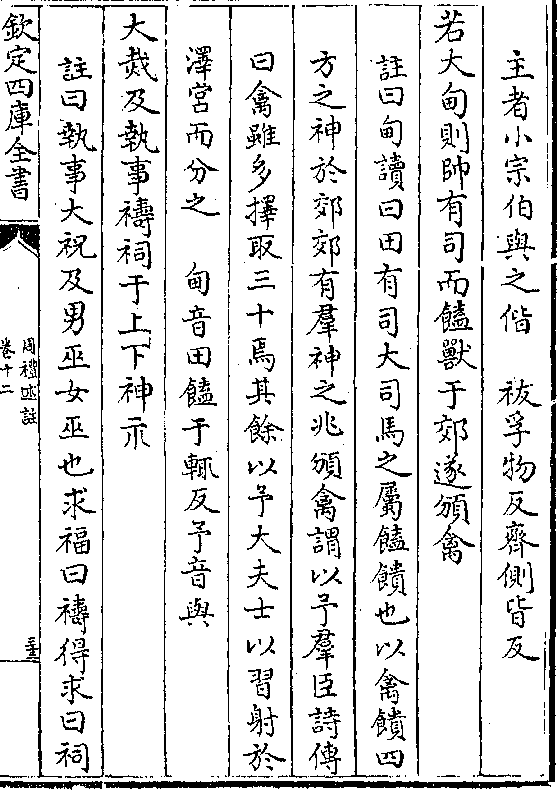 主者小宗伯與之偕　祓孚物反齊側皆反
若大甸則帥有司而饁獸于郊遂頒禽
註曰甸讀曰田有司大司馬之屬饁饋也以禽饋四
方之神於郊郊有羣神之兆頒禽謂以予羣臣詩傳
曰禽雖多擇取三十焉其餘以予大夫士以習射於
澤宮而分之　甸音田饁于輒反予音與
大烖及執事禱祠于上下神示
註曰執事大祝及男巫女巫也求福曰禱得求曰祠
欽定四庫全書
周禮述註
卷十二